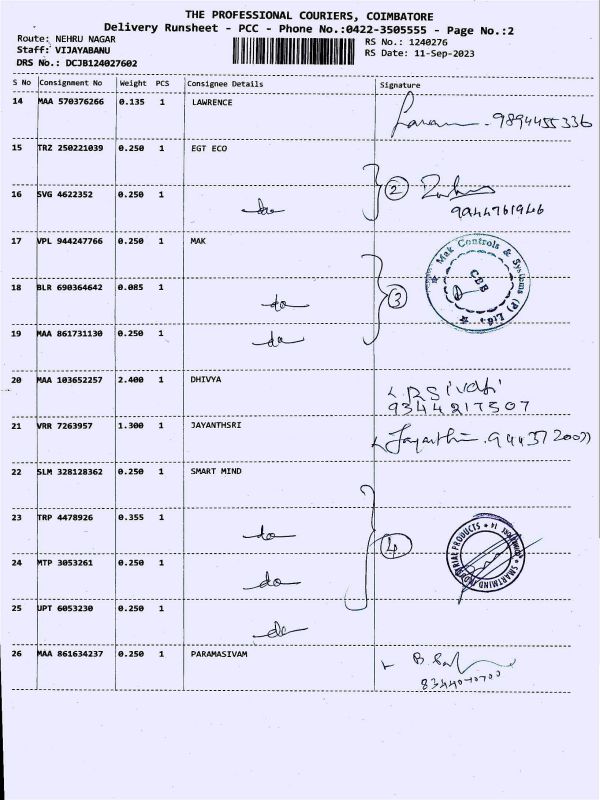 THE PROFESSIONAL COURIERS, COIMBATORE
Delivery Runsheet - PCC - Phone No.:0422-3505555 - Page No.:2
Route: NEHRU NAGAR
RS No.: 1240276
Staff: VIJAYABANU
RS Date: 11-Sep-2023
DRS No.: DCJB124027602
S No Consignment No Weight PCS Consignee Details Signature
14 MAA 570376266 0.135 1 LAWRENCE
9894455336
15 TRZ 250221039 0.250 1 EGT ECO
2
16 SVG 4622352 0.250 1 do
9944761946
17 VPL 944247766 0.250 1 MAK
Mak Controls & Systems (P) Ltd.,
CBE
18 BLR 690364642 0.085 1 do
3
19 MAA 861731130 0.250 1 do
20 MAA 103652257 2.400 1 DHIVYA
9344217507
21 VRR 7263957 1.300 1 JAYANTHSRI
22 SLM 328128362 0.250 1 SMART MIND
23 TRP 4478926 0.355 1 do
4
SMARTMIND INDUSTRIAL PRODUCTS
24 MTP 3053261 0.250 1 do
25 UPT 6053230 0.250 1 do
26 MAA 861634237 0.250 1 PARAMASIVAM